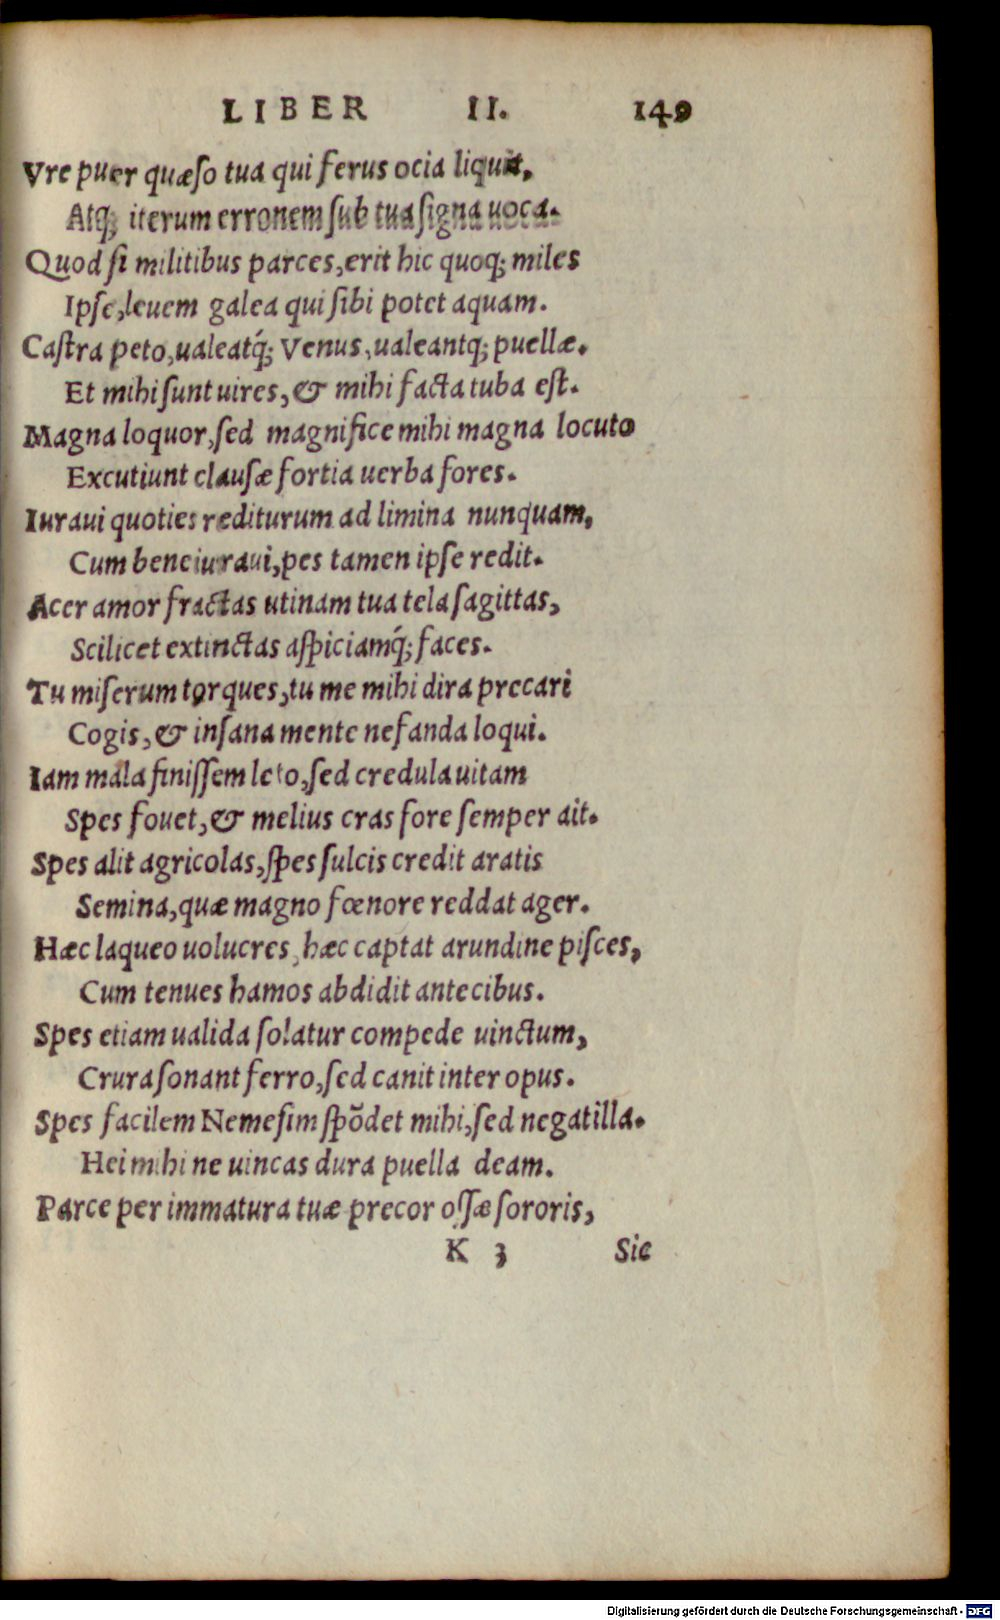 LIBER II. 149
Vre puer quæſo tua qui ferus ocia liquit,
Atq; iterum erronem ſub tua ſigna uoca.
Quod ſi militibus parces, erit hic quoq; miles
Ipſe, leuem galea qui ſibi potet aquam.
Caſtra peto, ualeatq́; Venus, ualeantq; puellæ.
Et mihi ſunt uires, & mihi facta tuba eſt.
Magna loquor, ſed magnifice mihi magna locuto
Excutiunt clauſæ fortia uerba fores.
Iuraui quoties rediturum ad limina nunquam,
Cum bene iuraui, pes tamen ipſe redit.
Acer amor fractas utinam tua tela ſagittas,
Scilicet extinctas aſpiciamq́; faces.
Tu miſerum torques, tu me mihi dira precari
Cogis, & inſana mente nefanda loqui.
Iam mala finiſſem leto, ſed credula uitam
Spes fouet, & melius cras fore ſemper ait.
Spes alit agricolas, ſpes ſulcis credit aratis
Semina, quæ magno fœnore reddat ager.
Hæc laqueo uolucres, hæc captat arundine piſces,
Cum tenues hamos abdidit ante cibus.
Spes etiam ualida ſolatur compede uinctum,
Crura ſonant ferro, ſed canit inter opus.
Spes facilem Nemeſim ſpõdet mihi, ſed negat illa.
Hei mihi ne uincas dura puella deam.
Parce per immatura tuæ precor oſſæ ſororis,
K 3 Sic
Digitalisierung gefördert durch die Deutsche Forschungsgemeinschaft - DFG